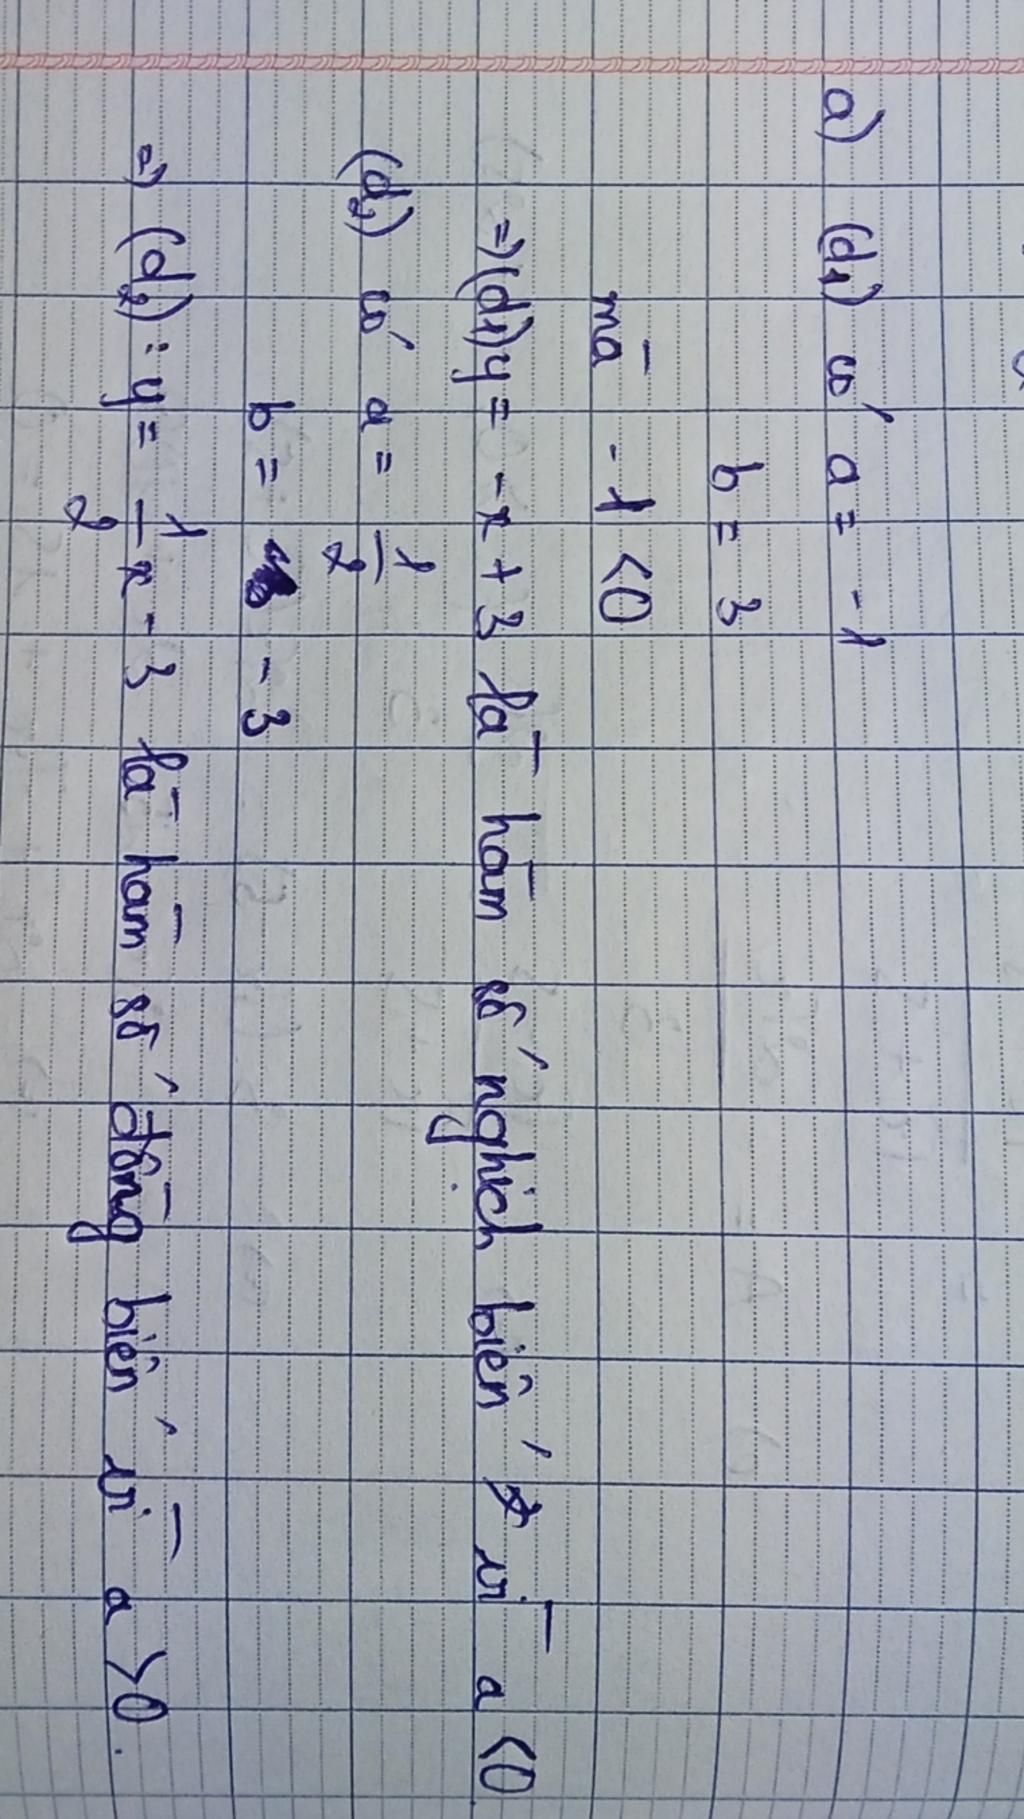 a) (d₁) có a = -1
b = 3
mà -1 < 0
=> (d₁) y = -x + 3 là hàm số nghịch biến vì a < 0
(d₂) có a = 1/2
b = -3
=> (d₂) : y = 1/2 x - 3 là hàm số đồng biến vì a > 0.